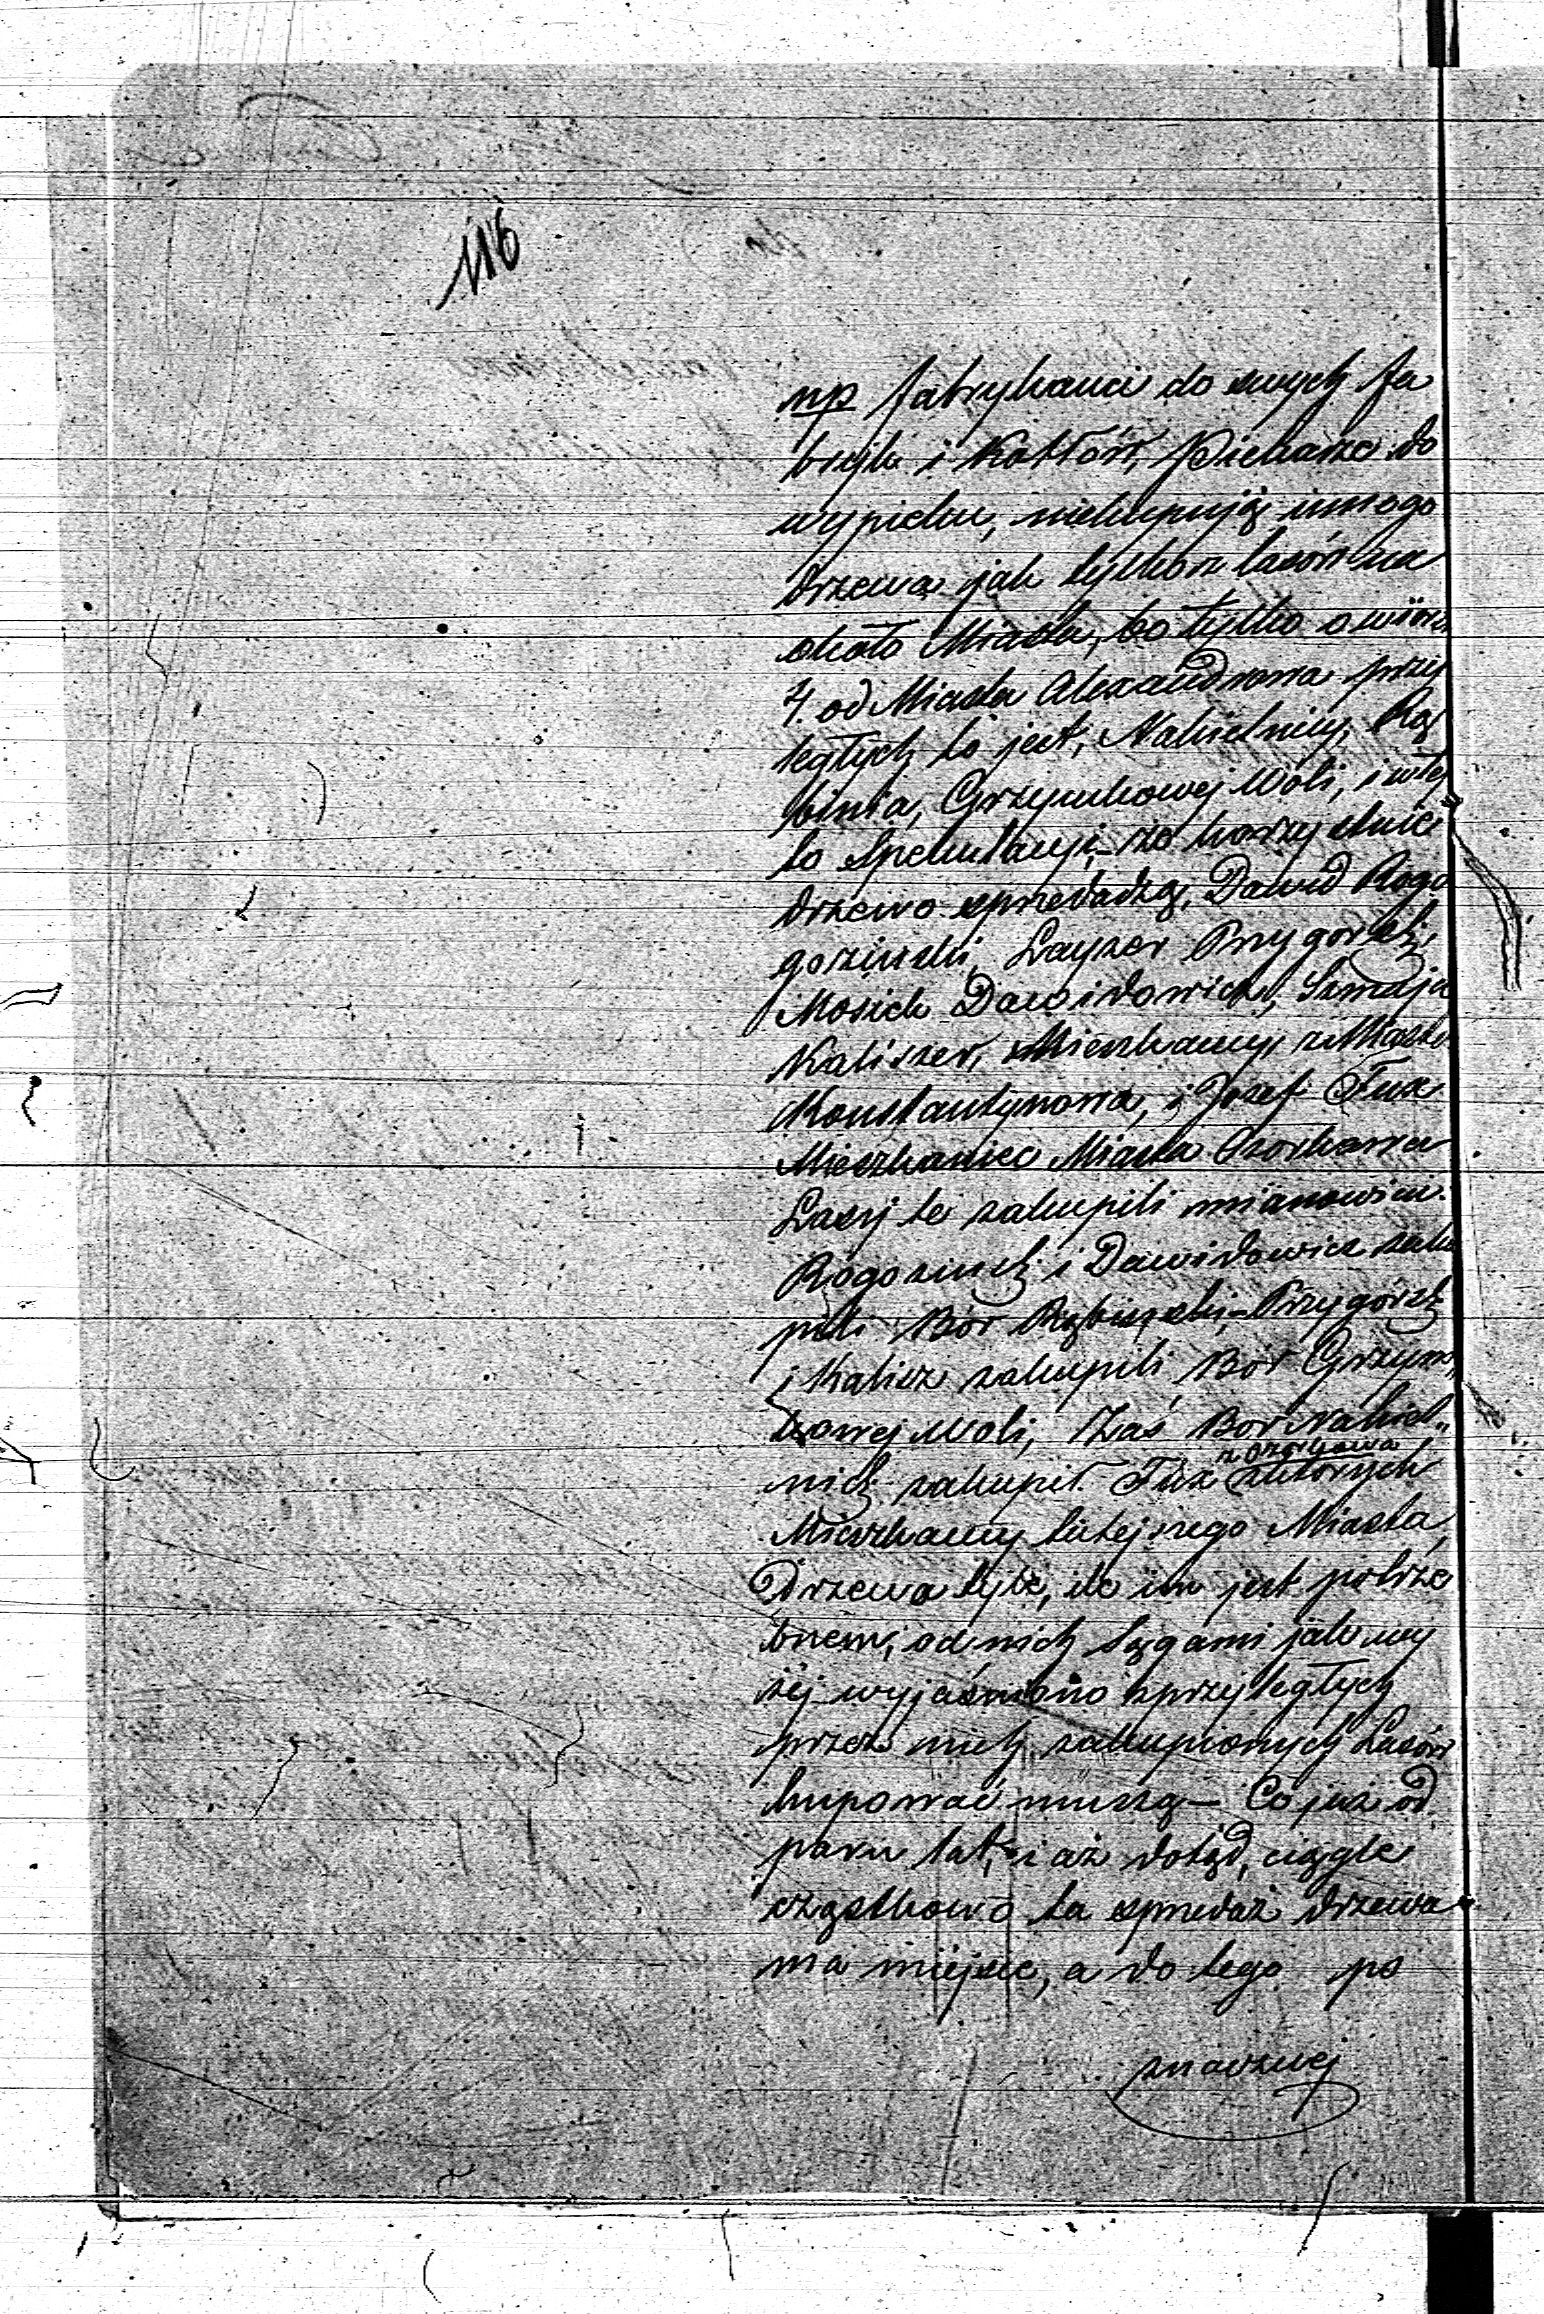 116
np fabrykanci do swych fa
bryk i Kotłów, Piekarze do
wypieku, niekupują innego
drzewa jak tylko z lasów na
około Miasta, bo tylko o wiors
4. od Miasta Alexandrowa przy
ległych to jest, Nakielnicy, Rą
binia, Grzymkowej Woli, i w tej
to Spekulacyi, że korzystnie
drzewo sprzedadzą, Dawid Rogo
goziński, Layzer Przygórski,
Mosiek Dawidowicz, Szmaja
Kaliszer, Mieszkańcy z Miasta
Konstantynowa, i Josef Fux
Mieszkaniec Miasta Ozorkowa
Lasy te zakupili mianowici:
Rogozinski i Dawidowicz zaku
pili Bór Rąbiński, Przygórski
i Kalisz zakupili Bór Grzym
kowej Woli, Zaś Bor Nakiel„
nicki zakupił Fux z Ozorkowa z których
Mieszkańcy tutejszego Miasta,
Drzewa tyle, ile im jest potrze
bnem, od nich Sągami jak wy
żej wyjaśniono z przyległych
przez nich zakupionych Lasów
kupować muszą – Co już od
paru lat, i aż dotąd, ciągle
cząstkowo ta sprzedaż drzewa
ma miejsce, a do tego po
znaczniej